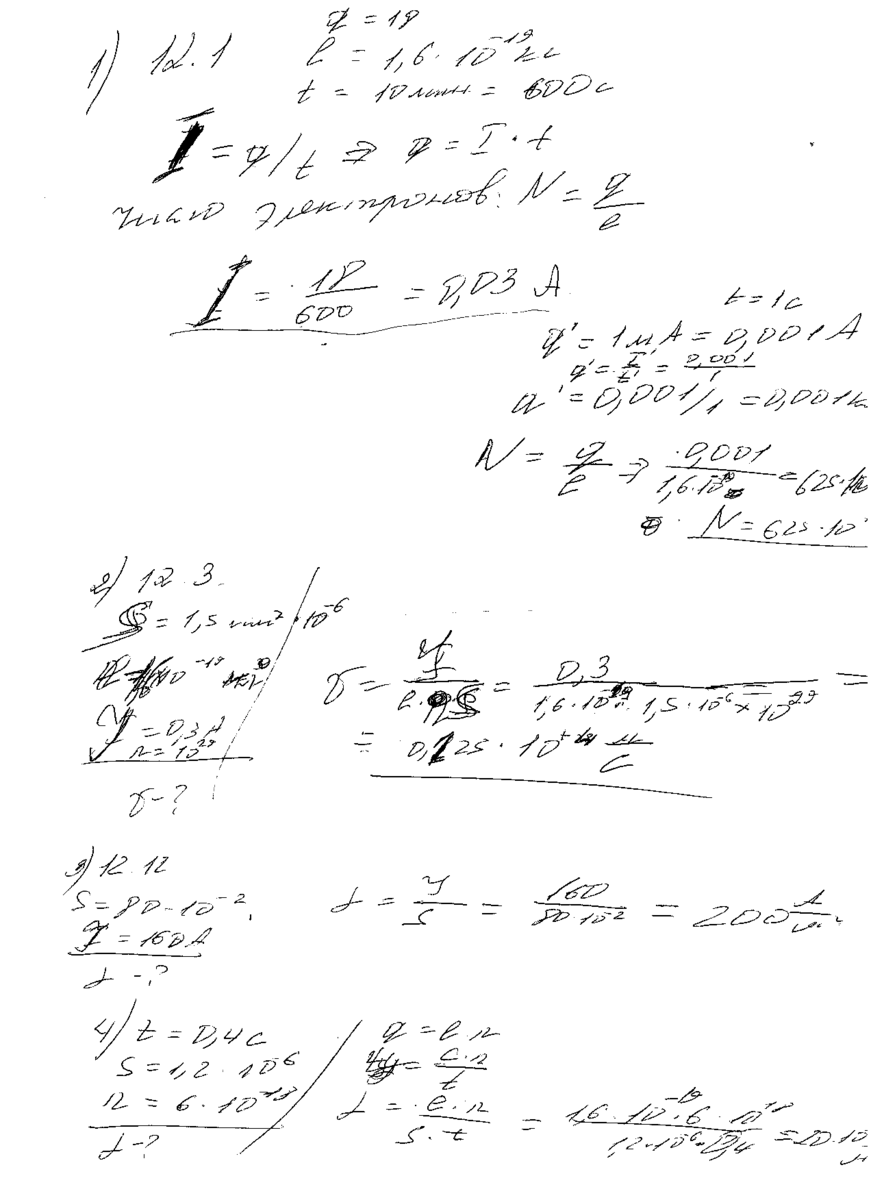 1) 12.1
q = 18
e = 1,6 · 10⁻¹⁹ кл
t = 10 мин = 600 с
I = q/t ⇒ q = I · t
число электронов: N = q/e
I = 18/600 = 0,03 А
t = 1 с
q' = 1 мА = 0,001 А
q' = I'/t' = 0,001/1
q' = 0,001/1 = 0,001 к
N = q/e ⇒ 0,001/1,6·10⁻¹⁹ = 625·10
N = 625·10
2) 12.3.
S = 1,5 мм² · 10⁻⁶
J = 0,3 А
n = 10²⁹
v - ?
v = J/e·n·S = 0,3/1,6·10⁻¹⁹ · 1,5·10⁻⁶ × 10²⁹ =
= 0,125 · 10 м/с
3) 12.12
S = 80 · 10⁻²
J = 160 А
j - ?
j = J/S = 160/80·10⁻² = 200 А/м²
4) t = 0,4 с
S = 1,2 · 10⁻⁶
n = 6 · 10⁻¹⁸
j - ?
q = e · n
= e·n/t
j = e·n/S·t = 1,6 · 10⁻¹⁹ · 6 · 10¹⁸/1,2·10⁻⁶ · 0,4 = 20·10